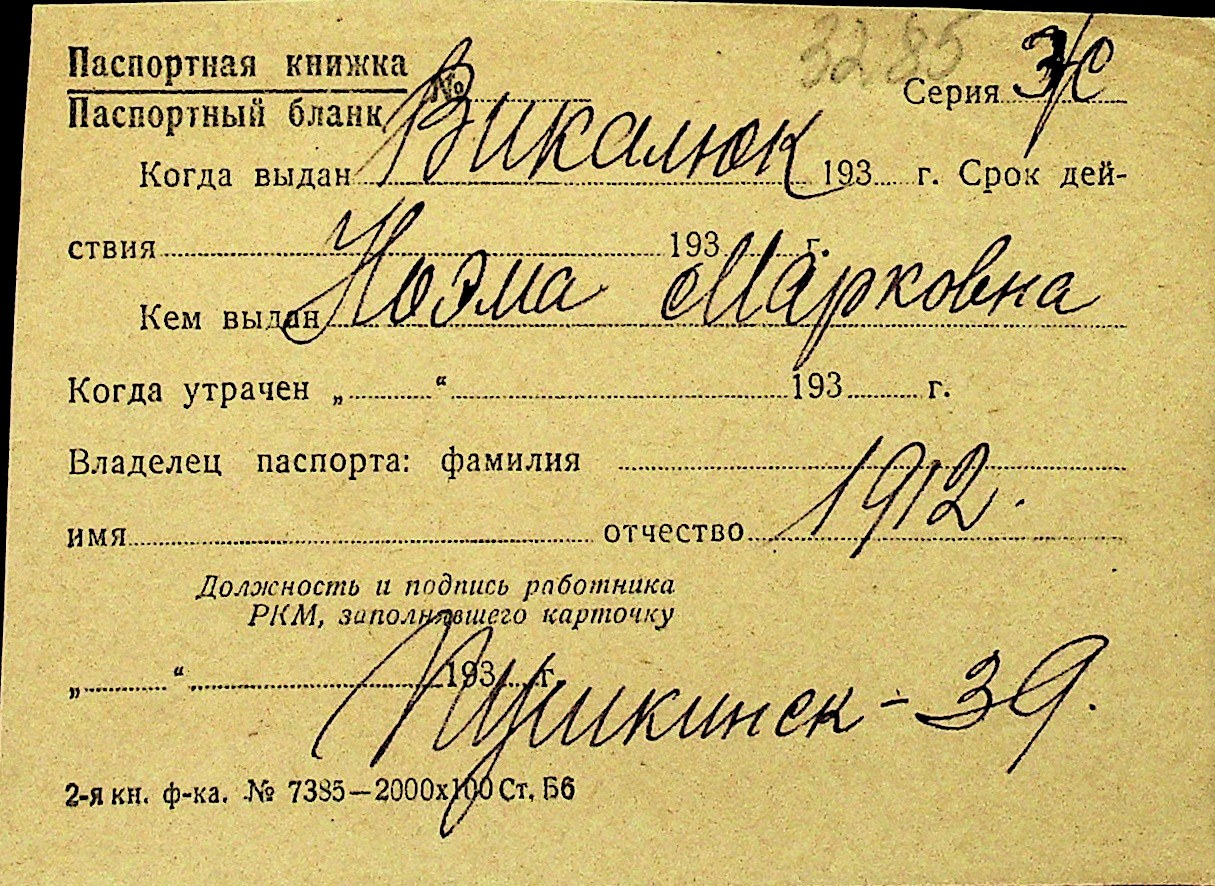 3285
Паспортная книжка
Паспортный бланк № Серия З/с
Викалюк
Когда выдан 193 г. Срок дей-
ствия 193 г.
Ноэма Марковна
Кем выдан
Когда утрачен „ “ 193 г.
Владелец паспорта: фамилия
1912.
имя отчество
Должность и подпись работника
РКМ, заполнявшего карточку
„ “ 193 г.
Пушкинск - 39.
2-я кн. ф-ка. № 7385—2000х100 Ст. Б6